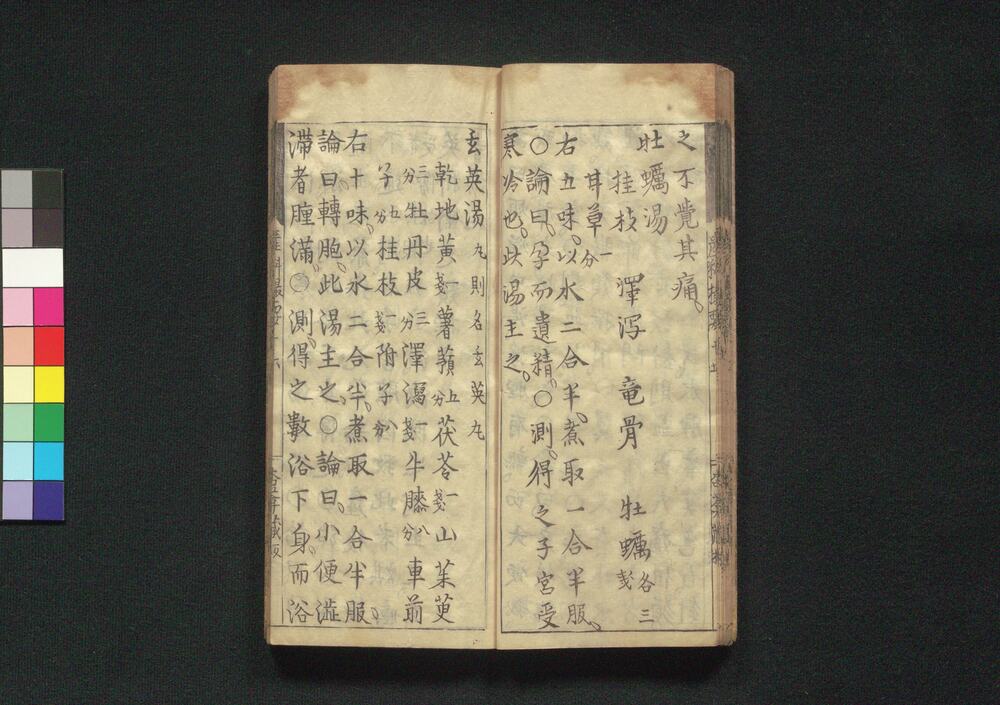 之不覺其痛
牡蠣湯
桂枝 澤泻 竜骨 牡蠣各三戔
甘草一分
右五味以水二合半煮取一合半服
○論曰孕而遺精○測得之子宮受
寒冷也此湯主之
玄英湯丸則名玄英丸
乾地黄一戔薯蕷五分茯苓一戔山茱萸
三分牡丹皮三分澤瀉一戔牛膝八分車前
子五分桂枝一戔附子分
右十味以水二合半煮取一合半服
論曰轉胞此湯主之○論曰小便澁
滞者腫滿○測得之數浴下身而浴